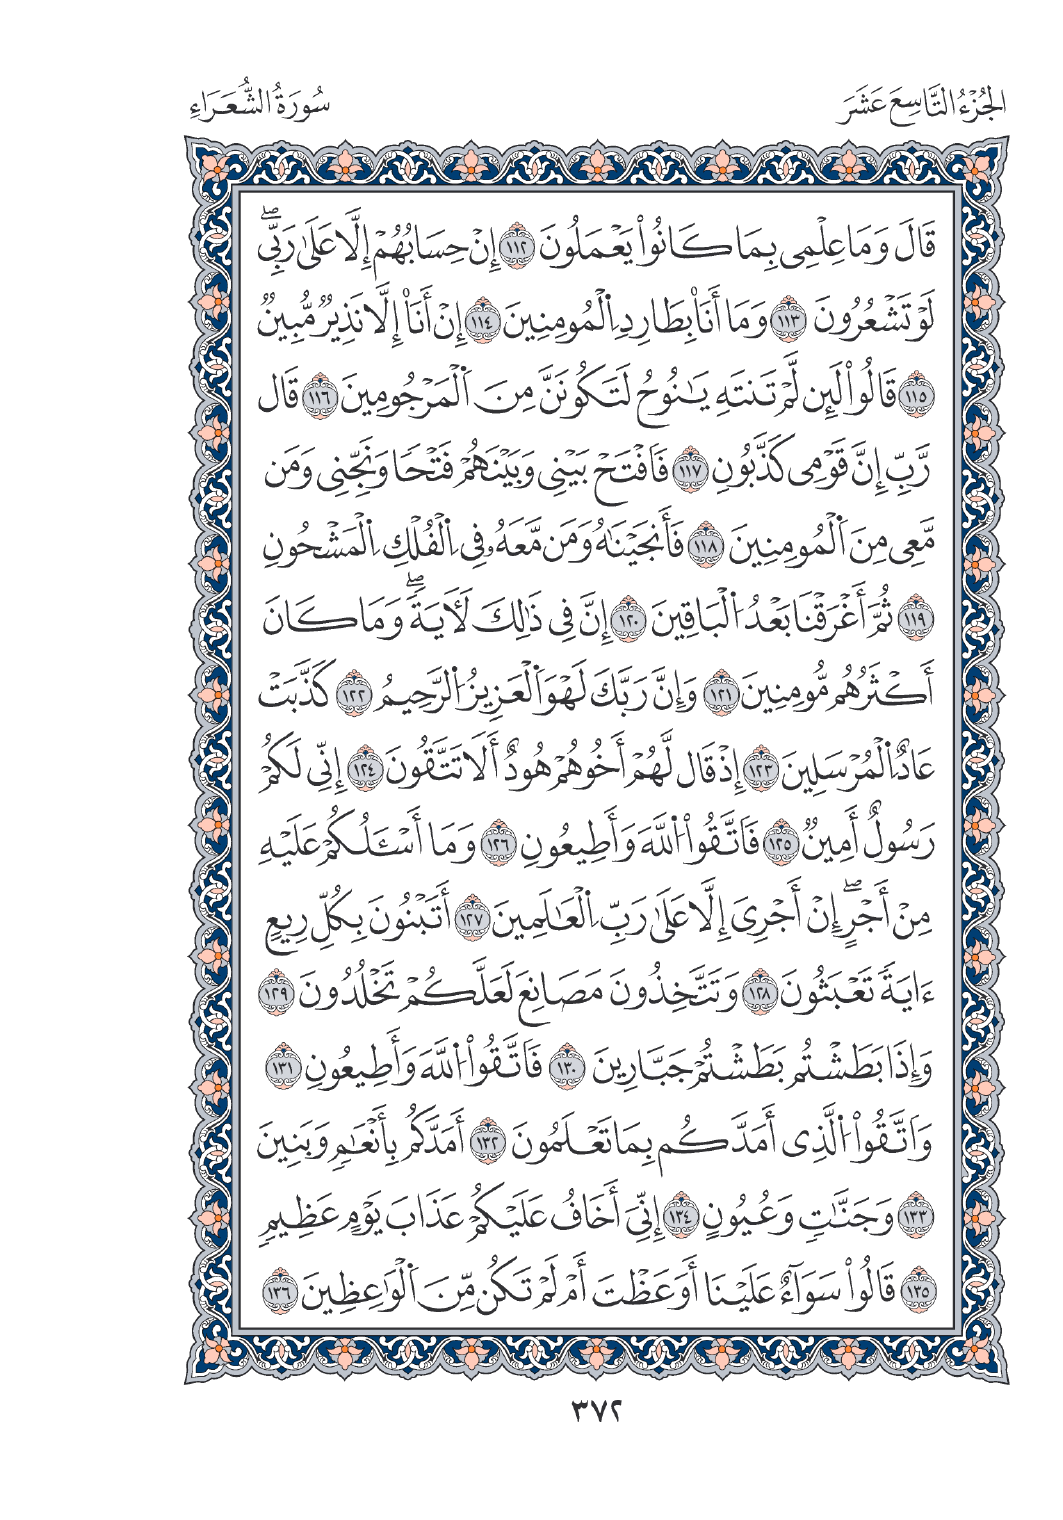 الجُزْءُ التَّاسِعَ عَشَرَ
سُورَةُ الشُّعَرَاءِ
قَالَ وَمَا عِلْمِى بِمَا كَانُواْ يَعْمَلُونَ ١١٢ إِنْ حِسَابُهُمْ إِلَّا عَلَىٰ رَبِّىۖ
لَوْ تَشْعُرُونَ ١١٣ وَمَا أَنَا۠ بِطَارِدِ اِ۬لْمُومِنِينَ ١١٤ إِنْ أَنَا۠ إِلَّا نَذِيرٌ مُّبِينٌ
١١٥ قَالُواْ لَئِن لَّمْ تَنتَهِ يَـٰنُوحُ لَتَكُونَنَّ مِنَ اَ۬لْمَرْجُومِينَ ١١٦ قَالَ
رَبِّ إِنَّ قَوْمِى كَذَّبُونِ ١١٧ فَافْتَحْ بَيْنِى وَبَيْنَهُمْ فَتْحًا وَنَجِّنِى وَمَن
مَّعِى مِنَ اَ۬لْمُومِنِينَ ١١٨ فَأَنجَيْنَـٰهُ وَمَن مَّعَهُۥ فِى اِ۬لْفُلْكِ اِ۬لْمَشْحُونِ
١١٩ ثُمَّ أَغْرَقْنَا بَعْدُ اُ۬لْبَاقِينَ ١٢٠ إِنَّ فِى ذَٰلِكَ لَأٓيَةًۖ وَمَا كَانَ
أَكْثَرُهُم مُّومِنِينَ ١٢١ وَإِنَّ رَبَّكَ لَهْوَ اَ۬لْعَزِيزُ اُ۬لرَّحِيمُ ١٢٢ كَذَّبَتْ
عَادٌ اِ۬لْمُرْسَلِينَ ١٢٣ إِذْ قَال لَّهُمْ أَخُوهُمْ هُودٌ أَلَا تَتَّقُونَ ١٢٤ إِنِّى لَكُمْ
رَسُولٌ أَمِينٌ ١٢٥ فَاتَّقُواْ اُ۬للَّهَ وَأَطِيعُونِ ١٢٦ وَمَا أَسْـَٔلُكُمْ عَلَيْهِ
مِنْ أَجْرٍۖ إِنْ أَجْرِىَ إِلَّا عَلَىٰ رَبِّ اِ۬لْعَـٰلَمِينَ ١٢٧ أَتَبْنُونَ بِكُلِّ رِيعٍ
ءَايَةً تَعْبَثُونَ ١٢٨ وَتَتَّخِذُونَ مَصَانِعَ لَعَلَّكُمْ تَخْلُدُونَ ١٢٩
وَإِذَا بَطَشْتُم بَطَشْتُمْ جَبَّارِينَ ١٣٠ فَاتَّقُواْ اُ۬للَّهَ وَأَطِيعُونِ ١٣١
وَاتَّقُواْ اُ۬لَّذِى أَمَدَّكُم بِمَا تَعْلَمُونَ ١٣٢ أَمَدَّكُم بِأَنْعَـٰمٍ وَبَنِينَ
١٣٣ وَجَنَّـٰتٍ وَعُيُونٍ ١٣٤ إِنِّىَ أَخَافُ عَلَيْكُمْ عَذَابَ يَوْمٍ عَظِيمٍ
١٣٥ قَالُواْ سَوَآءٌ عَلَيْنَا أَوَعَظْتَ أَمْ لَمْ تَكُن مِّنَ اَ۬لْوَٰعِظِينَ ١٣٦
٣٧٢